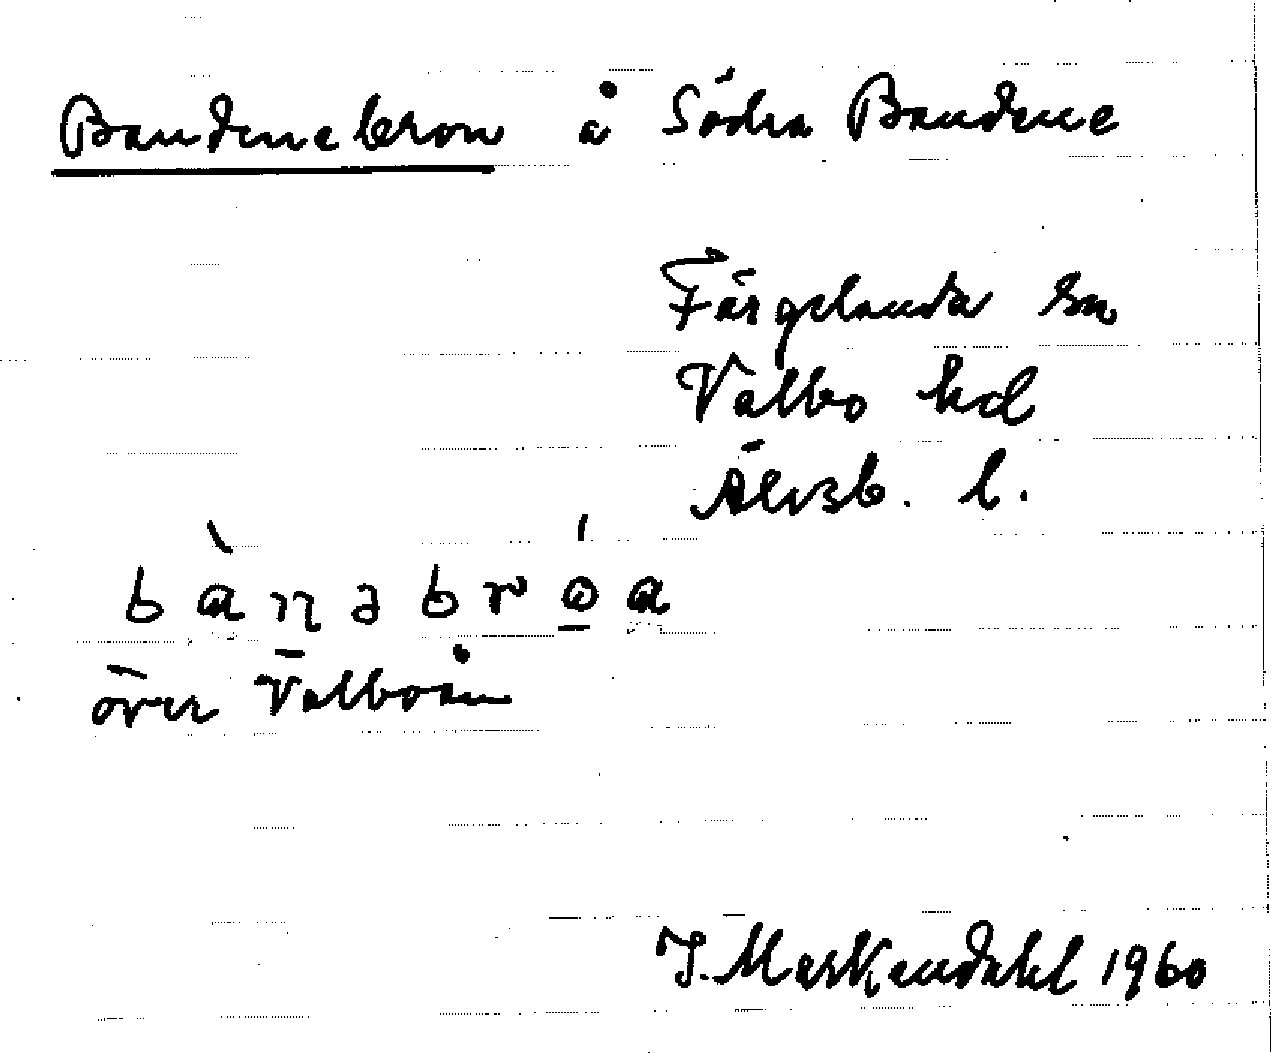 Baudenebron å Södra Baudene
Färgelanda sn
Valbo hd
Älvsb. l.
bànəbróa
över Valboån
J. Markendahl 1960